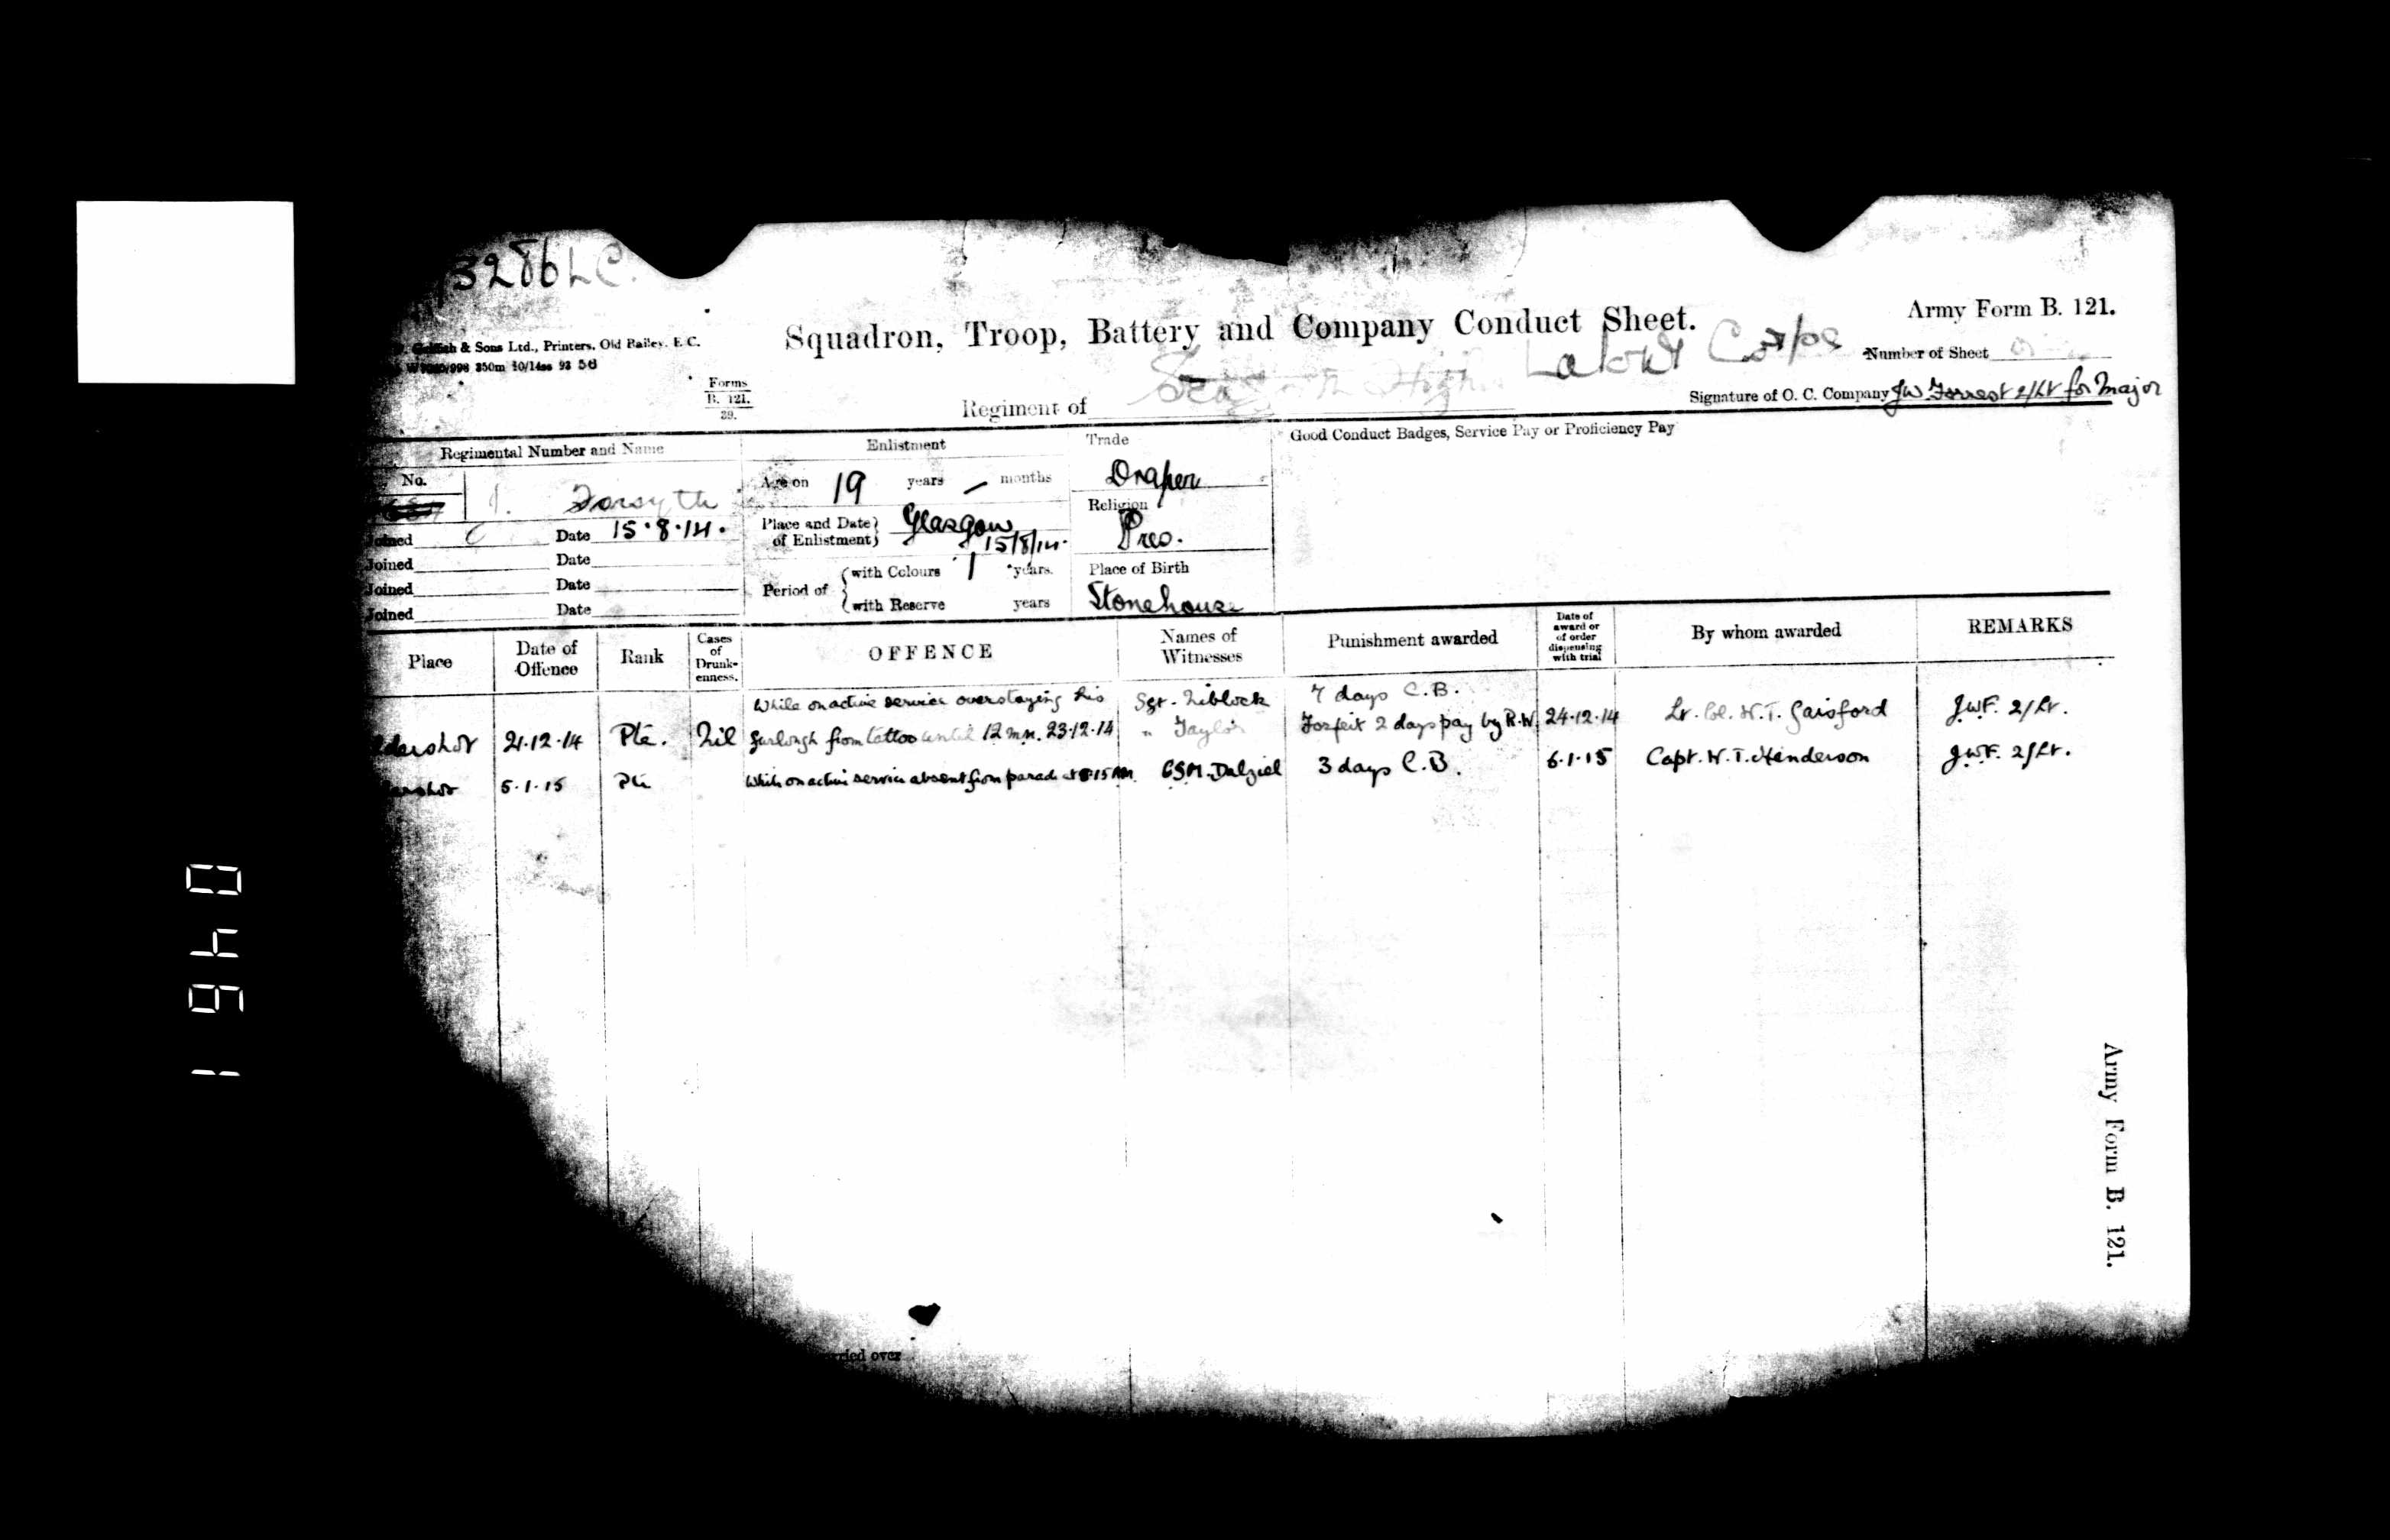 3286 L C.
& Sons Ltd., Printers, Old Bailey, E.C.
350m 10/14 93 58
Forms
B. 121.
39.
Squadron, Troop, Battery and Company Conduct Sheet.
Army Form B. 121.
Number of Sheet
Regiment of Labour Corps
Signature of O. C. Company J.W. Forrest 2/Lt for Major
Regimental Number and Name
No.
J. Forsyth
Joined Date 15.8.14.
Joined Date
Joined Date
Joined Date
Enlistment
Age on 19 years – months
Place and Date of Enlistment Glasgow 15/8/14.
Period of with Colours 1 years.
with Reserve years
Trade
Draper
Religion
Pres.
Place of Birth
Stonehouse
Good Conduct Badges, Service Pay or Proficiency Pay
Place Date of Offence Rank Cases of Drunkenness. OFFENCE Names of Witnesses Punishment awarded Date of award or of order dispensing with trial By whom awarded REMARKS
While on active service overstaying his Sgt. Niblock 7 days C.B.
ldershot 21.12.14 Pte. Nil furlough from tattoo until 12 mn. 23.12.14 " Taylor Forfeit 2 days pay by R.W. 24.12.14 Lt. Col. W.T. Gaisford J.W.F. 2/Lt.
ershot 5.1.15 Pte While on active service absent from parade at 8.15 AM. CSM. Dalziel 3 days C.B. 6.1.15 Capt. N.T. Henderson J.W.F. 2/Lt.
rried over
Army Form B. 121.
0461